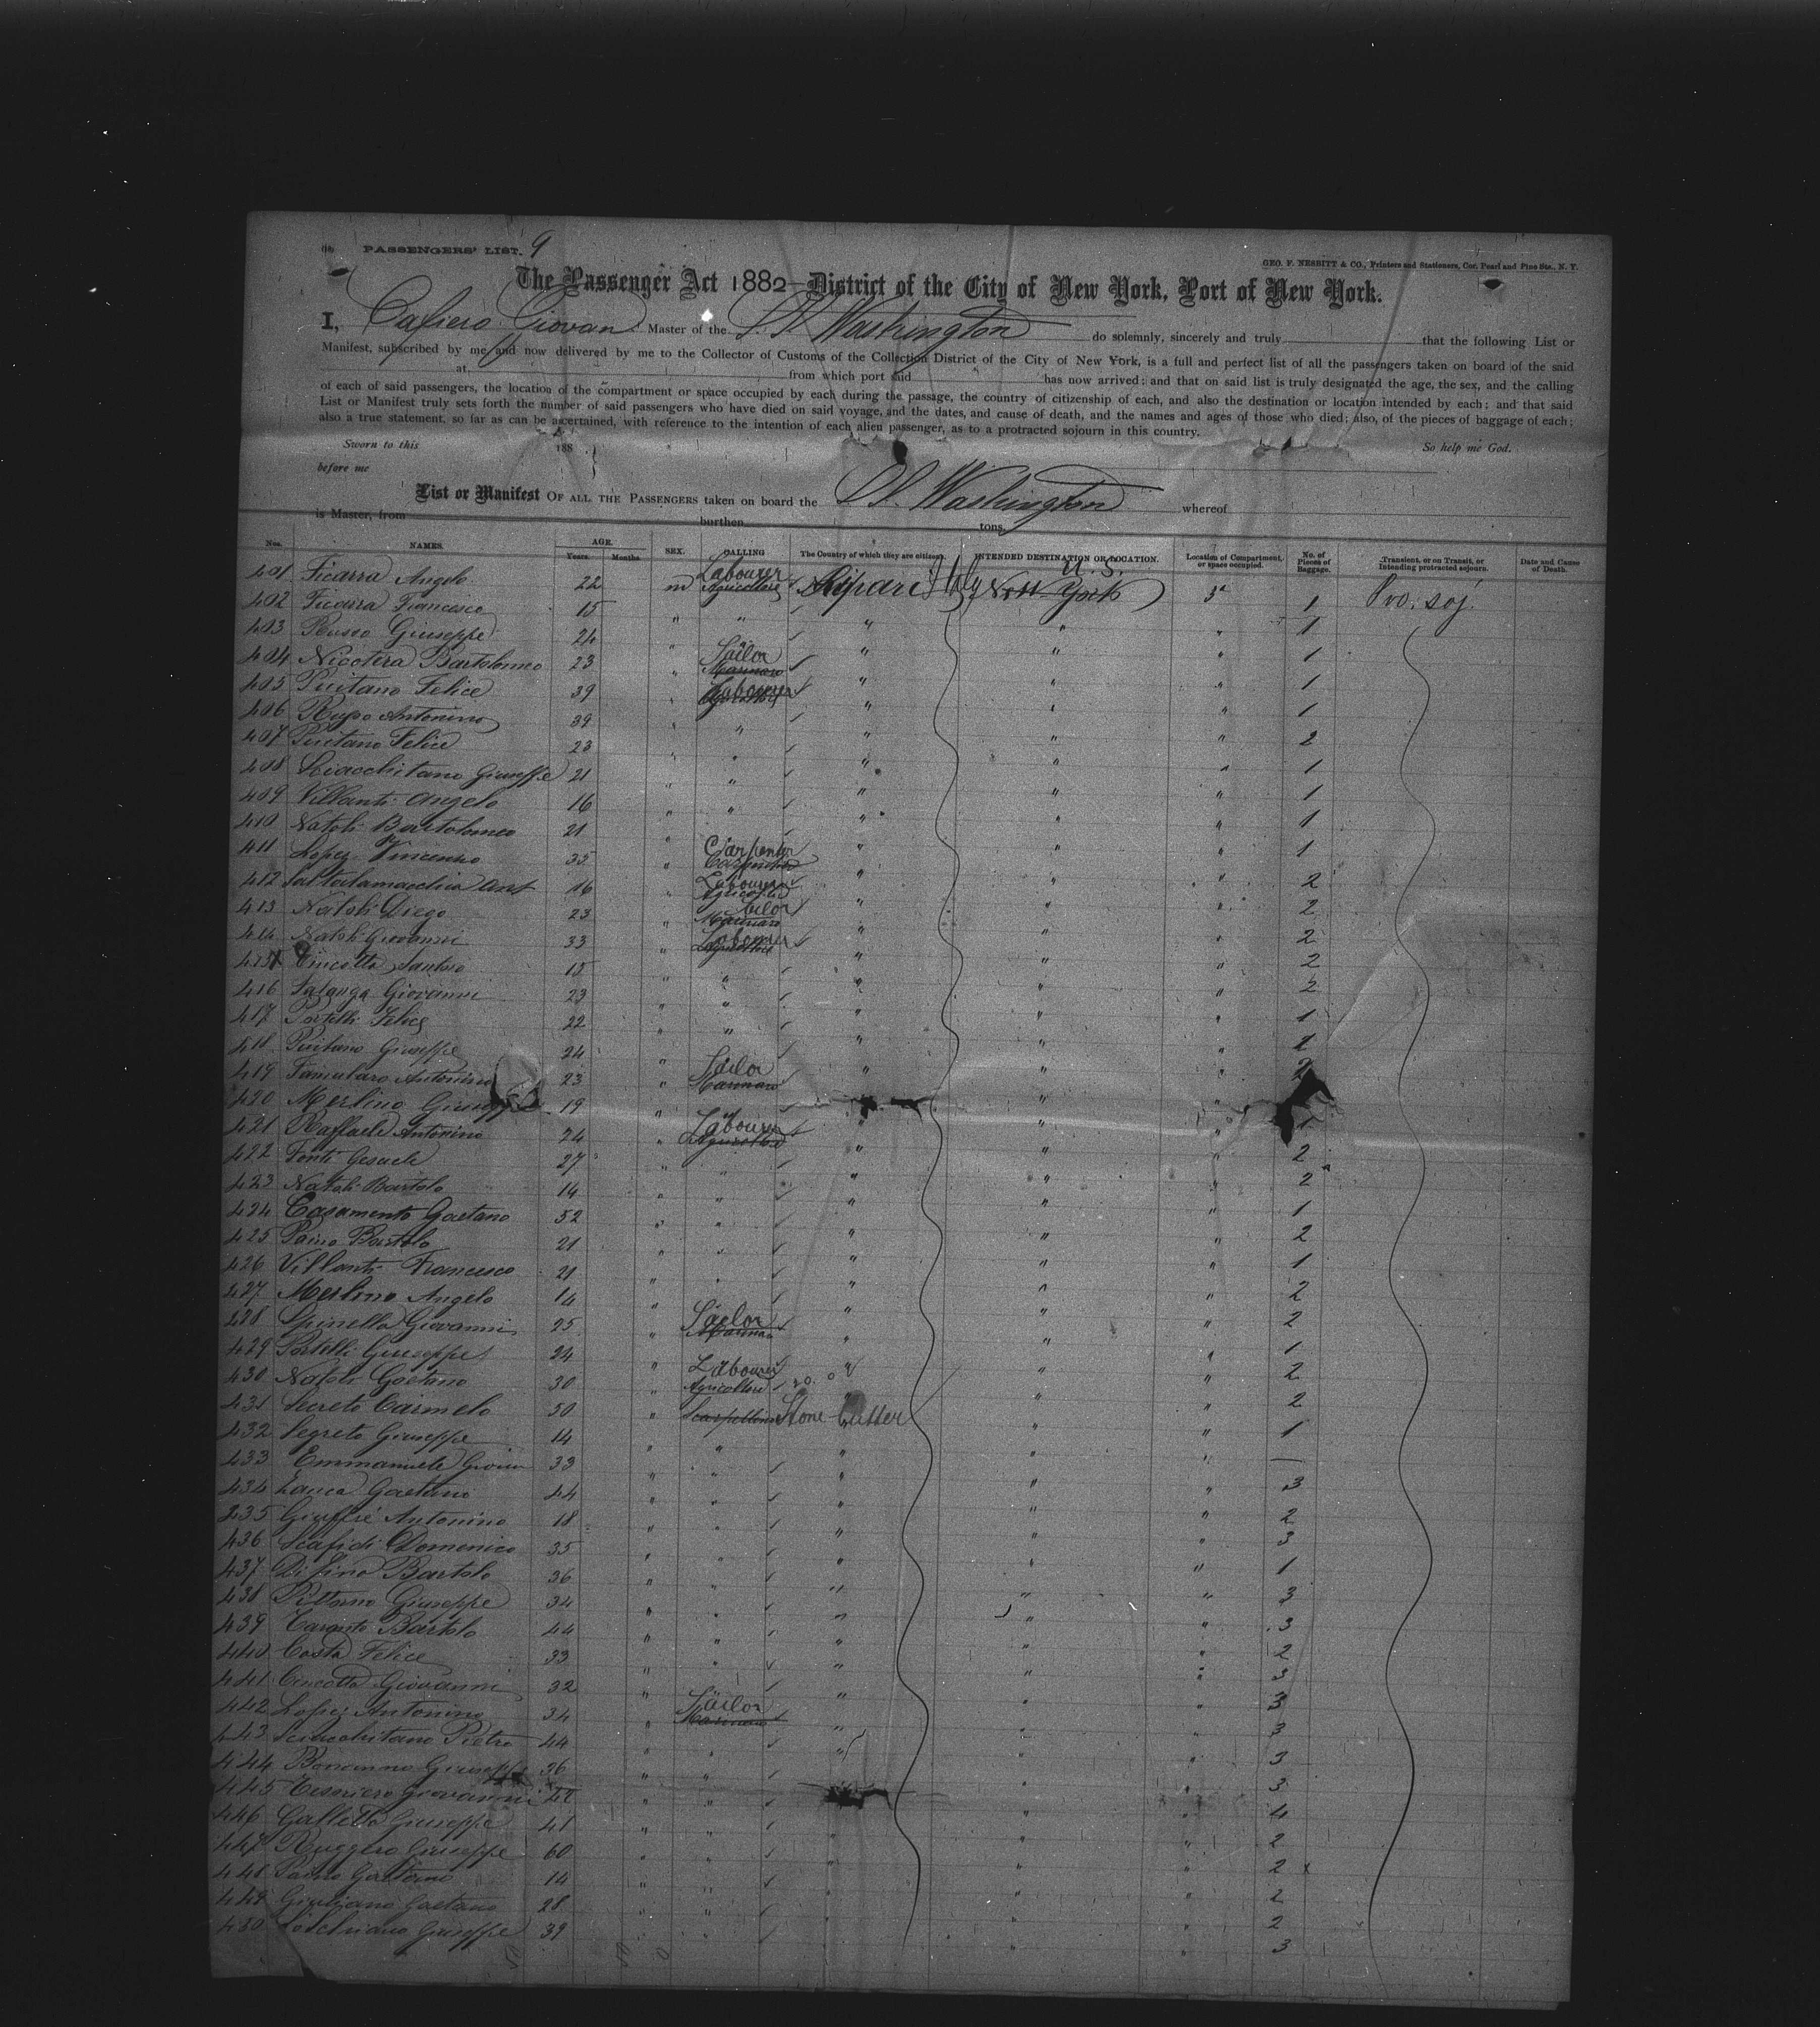 PASSENGERS' LIST. 9
GEO. F. NESBITT & CO., Printers and Stationers, Cor. Pearl and Pine Sts., N. Y.
The Passenger Act 1882 District of the City of New York, Port of New York.
I, Cafiero Giovan Master of the S. S. Washington do solemnly, sincerely and truly that the following List or
Manifest, subscribed by me, and now delivered by me to the Collector of Customs of the Collection District of the City of New York, is a full and perfect list of all the passengers taken on board of the said
at from which port said has now arrived; and that on said list is truly designated the age, the sex, and the calling
of each of said passengers, the location of the compartment or space occupied by each during the passage, the country of citizenship of each, and also the destination or location intended by each; and that said
List or Manifest truly sets forth the number of said passengers who have died on said voyage, and the dates, and cause of death, and the names and ages of those who died; also, of the pieces of baggage of each;
also a true statement, so far as can be ascertained, with reference to the intention of each alien passenger, as to a protracted sojourn in this country.
Sworn to this 188 So help me God.
before me
List or Manifest OF ALL THE PASSENGERS taken on board the S. S. Washington whereof
is Master, from burthen tons.
Nos. NAMES. AGE. Years. Months. SEX. CALLING The Country of which they are citizens. INTENDED DESTINATION OR LOCATION. Location of Compartment, or space occupied. No. of Pieces of Baggage. Transient, or on Transit, or Intending protracted sojourn. Date and Cause of Death.
401 Ficarra Angelo 22 m Labourer Agricoltore Lipari Italy U.S. New York 3a 1 Pro. soj.
402 Ficarra Francesco 15 " " " " " 1
403 Russo Giuseppe 24 " " " " 1
404 Nicotera Bartolomeo 23 " Sailor Marinaro " " " 1
405 Puitano Felice 39 " Labourer Agricoltore " " " 1
406 Antonino 39 " " " " " 2
407 Puitano Felice 23 " " " " " 1
408 Sciacchitano Giuseppe 21 " " " " " 1
409 Villanti Angelo 16 " " " " " 1
410 Natoli Bartolomeo 21 " " " " 1
411 Lopez Vincenzo 35 " Carpenter " " " 2
412 Saltalamacchia Ant 16 " Labourer Agricoltore " " " 2
413 Natoli Diego 23 " Sailor Marinaro " " " 2
414 Natoli Giovanni 33 " Labourer Agricoltore " " " 2
415 Cincotta Santoro 15 " " " " " 2
416 Giovanni 23 " " " " " 1
417 Portelli Felice 22 " " " " "
418 Puitano Giuseppe 24 " " " " 2
419 Famularo Antonino 23 " Sailor Marinaro " "
420 Merlino Giuseppe 19 " " " " 1
421 Raffaele Antonino 24 " Labourer Agricoltore " " " 2
422 Fonti Gesuele 27 " " " " " 2
423 Natoli Bartolo 14 " " " " " 1
424 Casamento Gaetano 52 " " " " " 2
425 Paino Bartolo 21 " " " " " 1
426 Villanti Francesco 21 " " " " " 2
427 Merlino Angelo 14 " " " " 2
428 Spinella Giovanni 25 " Sailor Marinaro " " " 1
429 Portelli Giuseppe 24 " " " " 2
430 Natoli Gaetano 30 " Labourer Agricoltore " " " 2
431 Secreto Carmelo 50 " Scarpellino Stone Cutter " " 1
432 Segreto Giuseppe 14 " " " " "
433 Emmanuele 33 " " " " " 3
434 Gaetano 44 " " " " " 2
435 Giuffrè Antonino 18 " " " " " 3
436 Scafidi Domenico 35 " " " " " 1
437 Di Bartolo 36 " " " " " 3
438 Giuseppe 34 " " " " " 3
439 Bartolo 44 " " " " " 2
440 Costa Felice 33 " " " " " 3
441 Cincotta Giovanni 32 " " " " 3
442 Lopez Antonino 34 " Sailor Marinaro " " " 3
443 Sciacchitano Pietro 44 " " " " " 3
444 Bonanno Giuseppe 36 " " " " 3
445 Giovanni " " " " 4
446 Galletta Giuseppe 41 " " " " " 2
447 Ruggero Giuseppe 60 " " " " " 2 x
448 Paino 14 " " " " 2
449 Giuliano Gaetano 28 " " " " 2
450 Giuseppe 39 " " 3